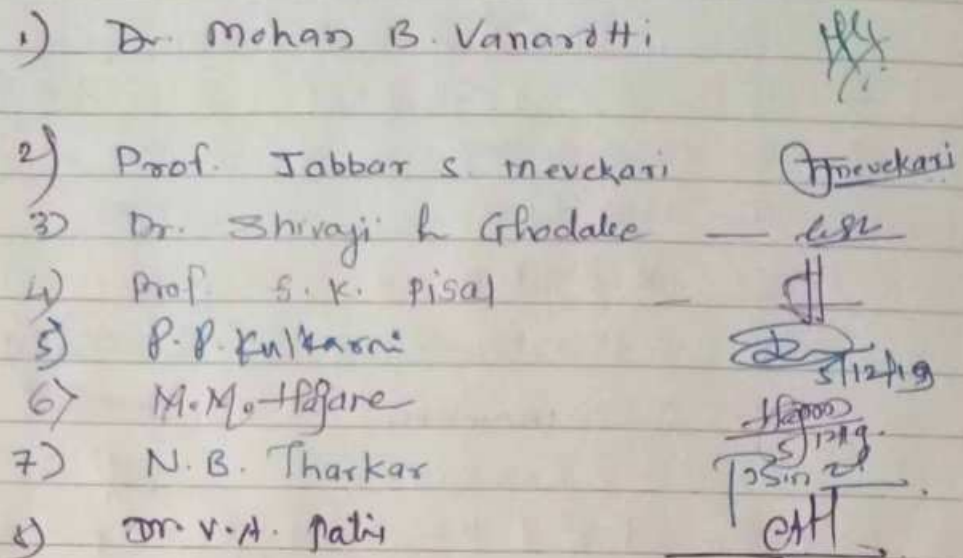 1) Dr. Mohan B. Vanarotti
2) Prof. Jabbar S. Mevekari Mevekari
3) Dr. Shivaji h Ghodake —
4) Prof. S. K. Pisal -
5) P. P. Kulkarni 5/12/19
6) M. M. Hajare 5/12/19.
7) N. B. Tharkar
8) Dr. V. A. Patil